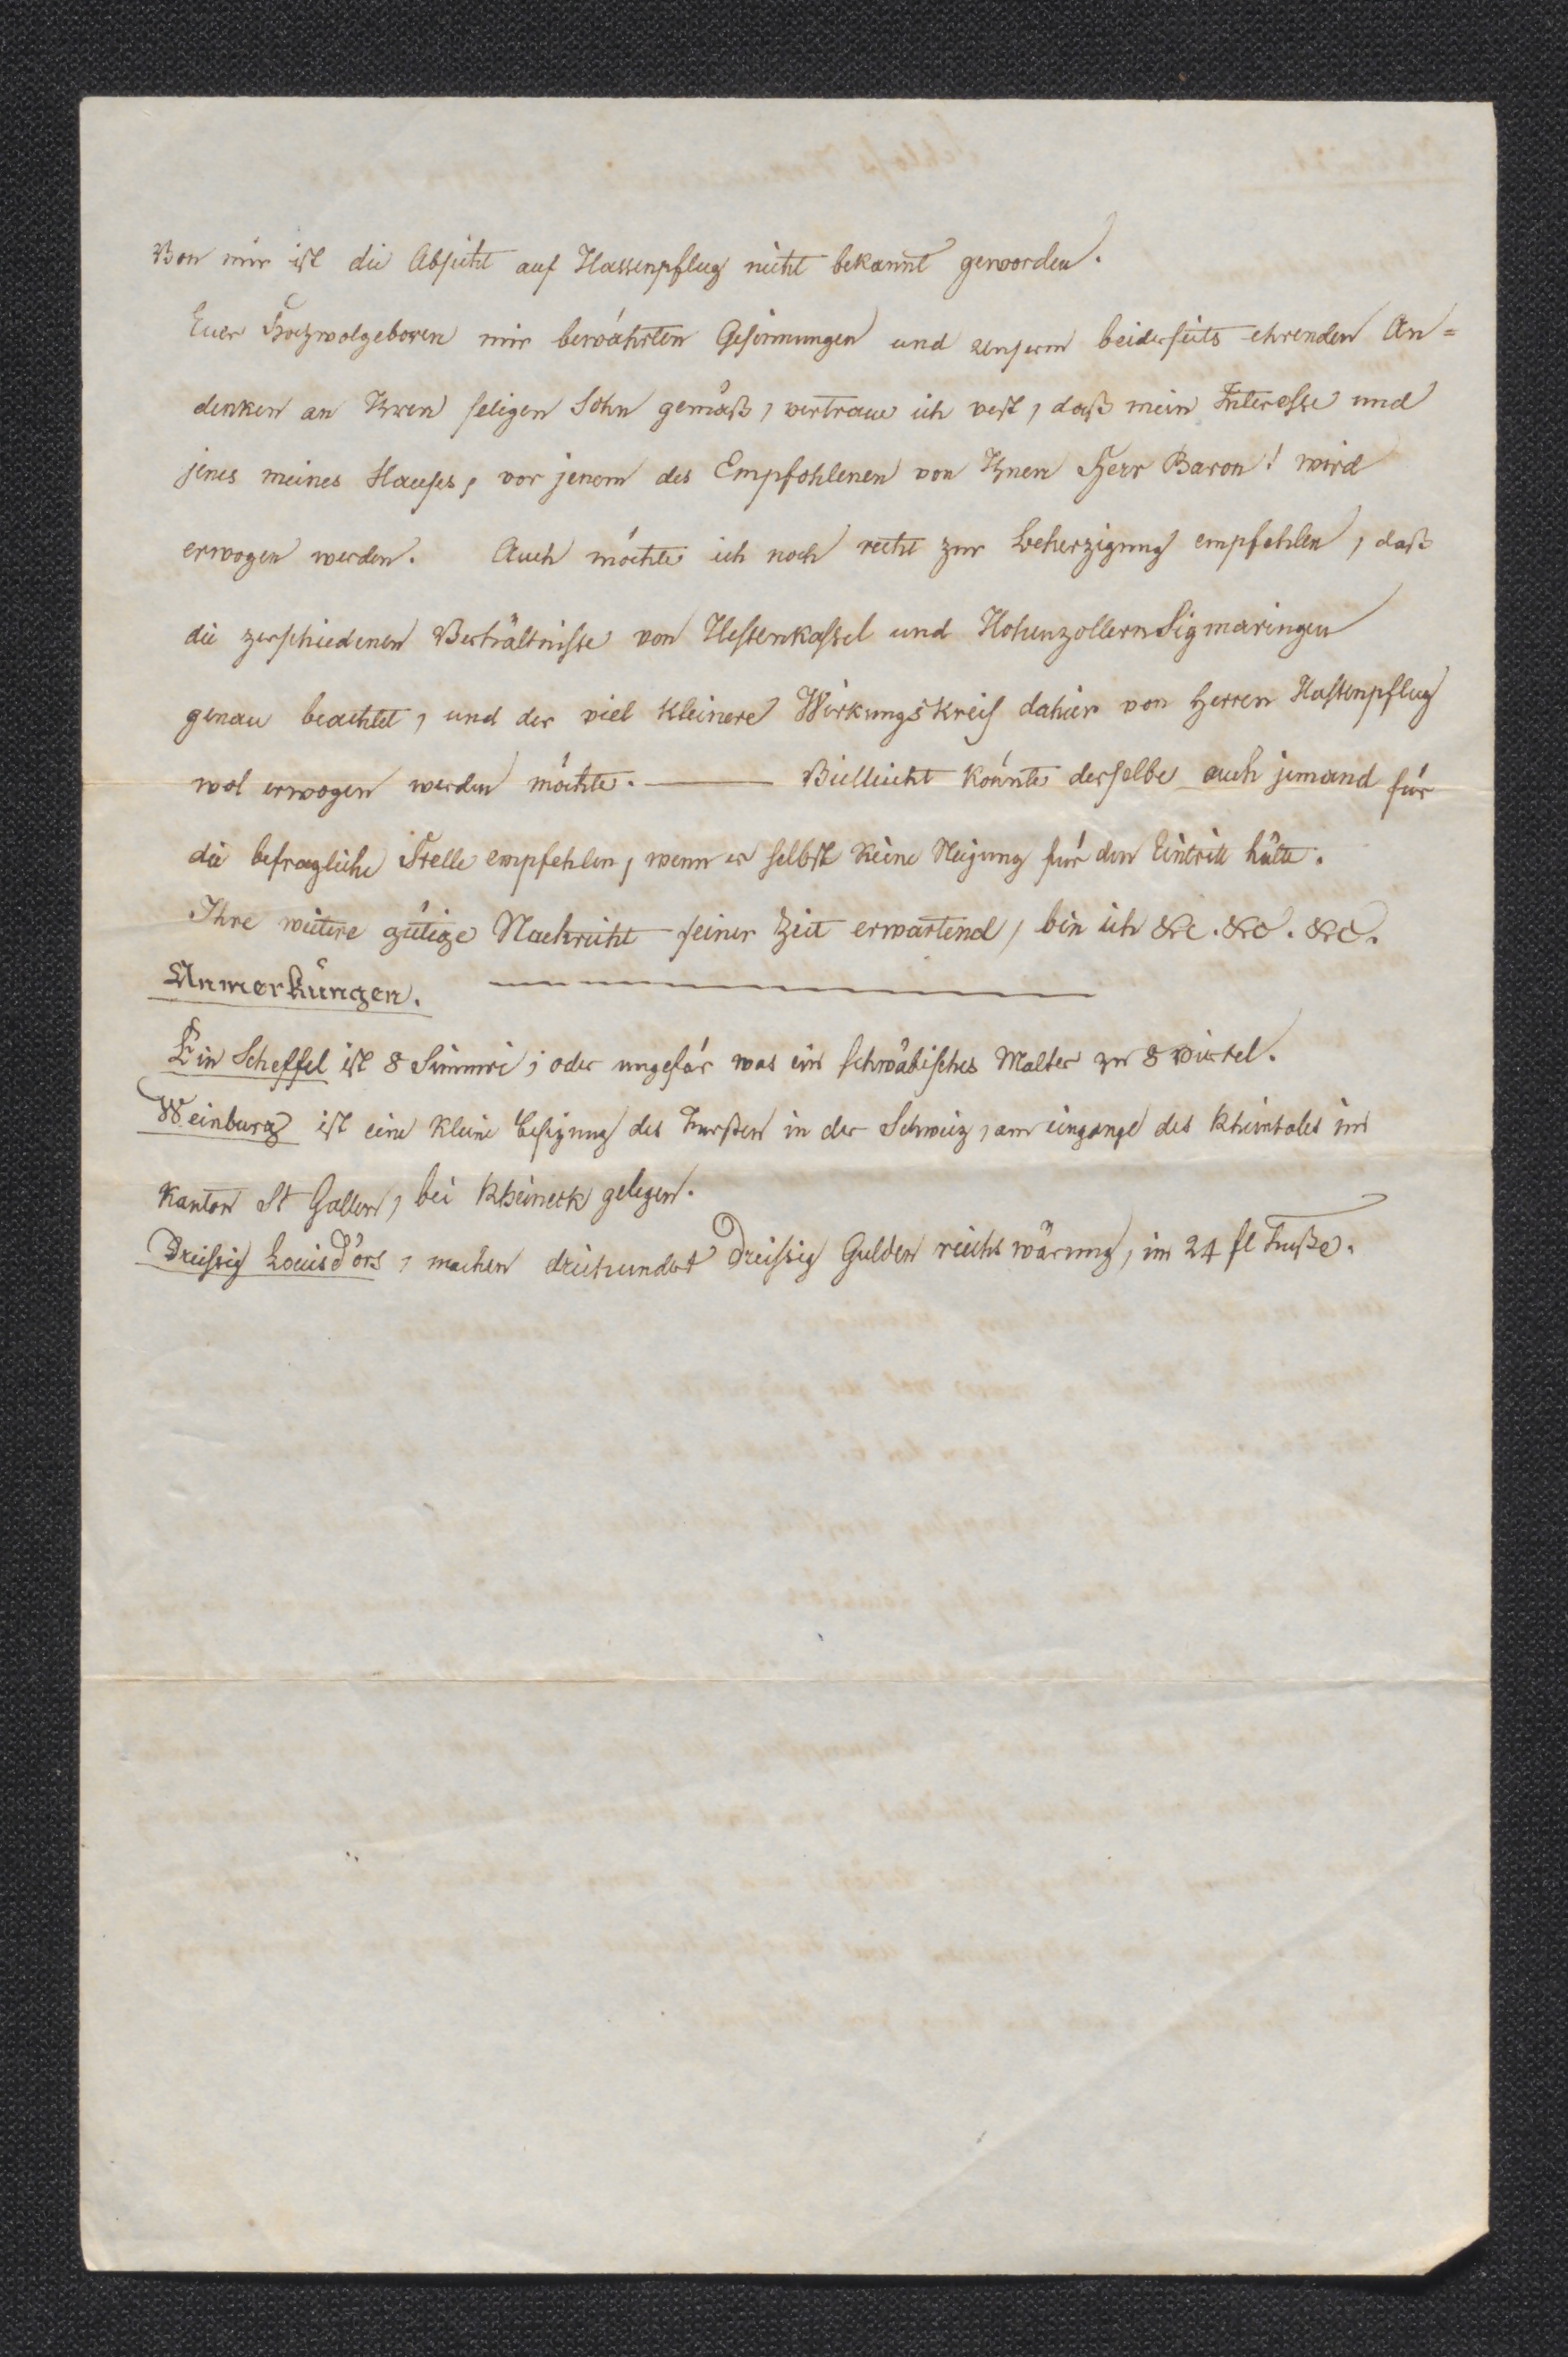 Von mir ist die Absicht auf Hassenpflug nicht bekannt geworden.
Euer Hochwolgeboren mir bewährten Gesinnungen und unserm beiderseits ehrenden An=
denken an Ihren seligen Sohn gemäß, vertraue ich vest, daß mein Interesse und
jenes meines Hauses, vor jenem des Empfohlenen von Ihnen Herr Baron! wird
erwogen werden. Auch möchte ich noch recht zur Beherzigung empfehlen, daß
die verschiedenen Verhältnisse von Hessenkassel und Hohenzollern Sigmaringen
genau beachtet, und der viel kleinere Wirkungskreis dahier von Herren Hassenpflug
wol erwogen werden möchte. ——— Vielleicht könnte derselbe auch jemand für
die befragliche Stelle empfehlen, wenn er selbst keine Neigung für den Eintritt hätte.
Ihre weitere gütige Nachricht seiner Zeit erwartend, bin ich &c. &c. &c.
Anmerkungen.
Ein Scheffel ist 8 Simmri, oder ungefär was ein schwäbisches Malter zu 8 viertel.
Weinburg ist eine kleine besizung des Fürsten in der Schweiz, am eingange des Rheintales im
Kanton St Gallen, bei Rheineck gelegen.
Dreissig Louisd'ors, machen dreihundert Dreissig Gulden reichswärung, im 24 fl Fuße.